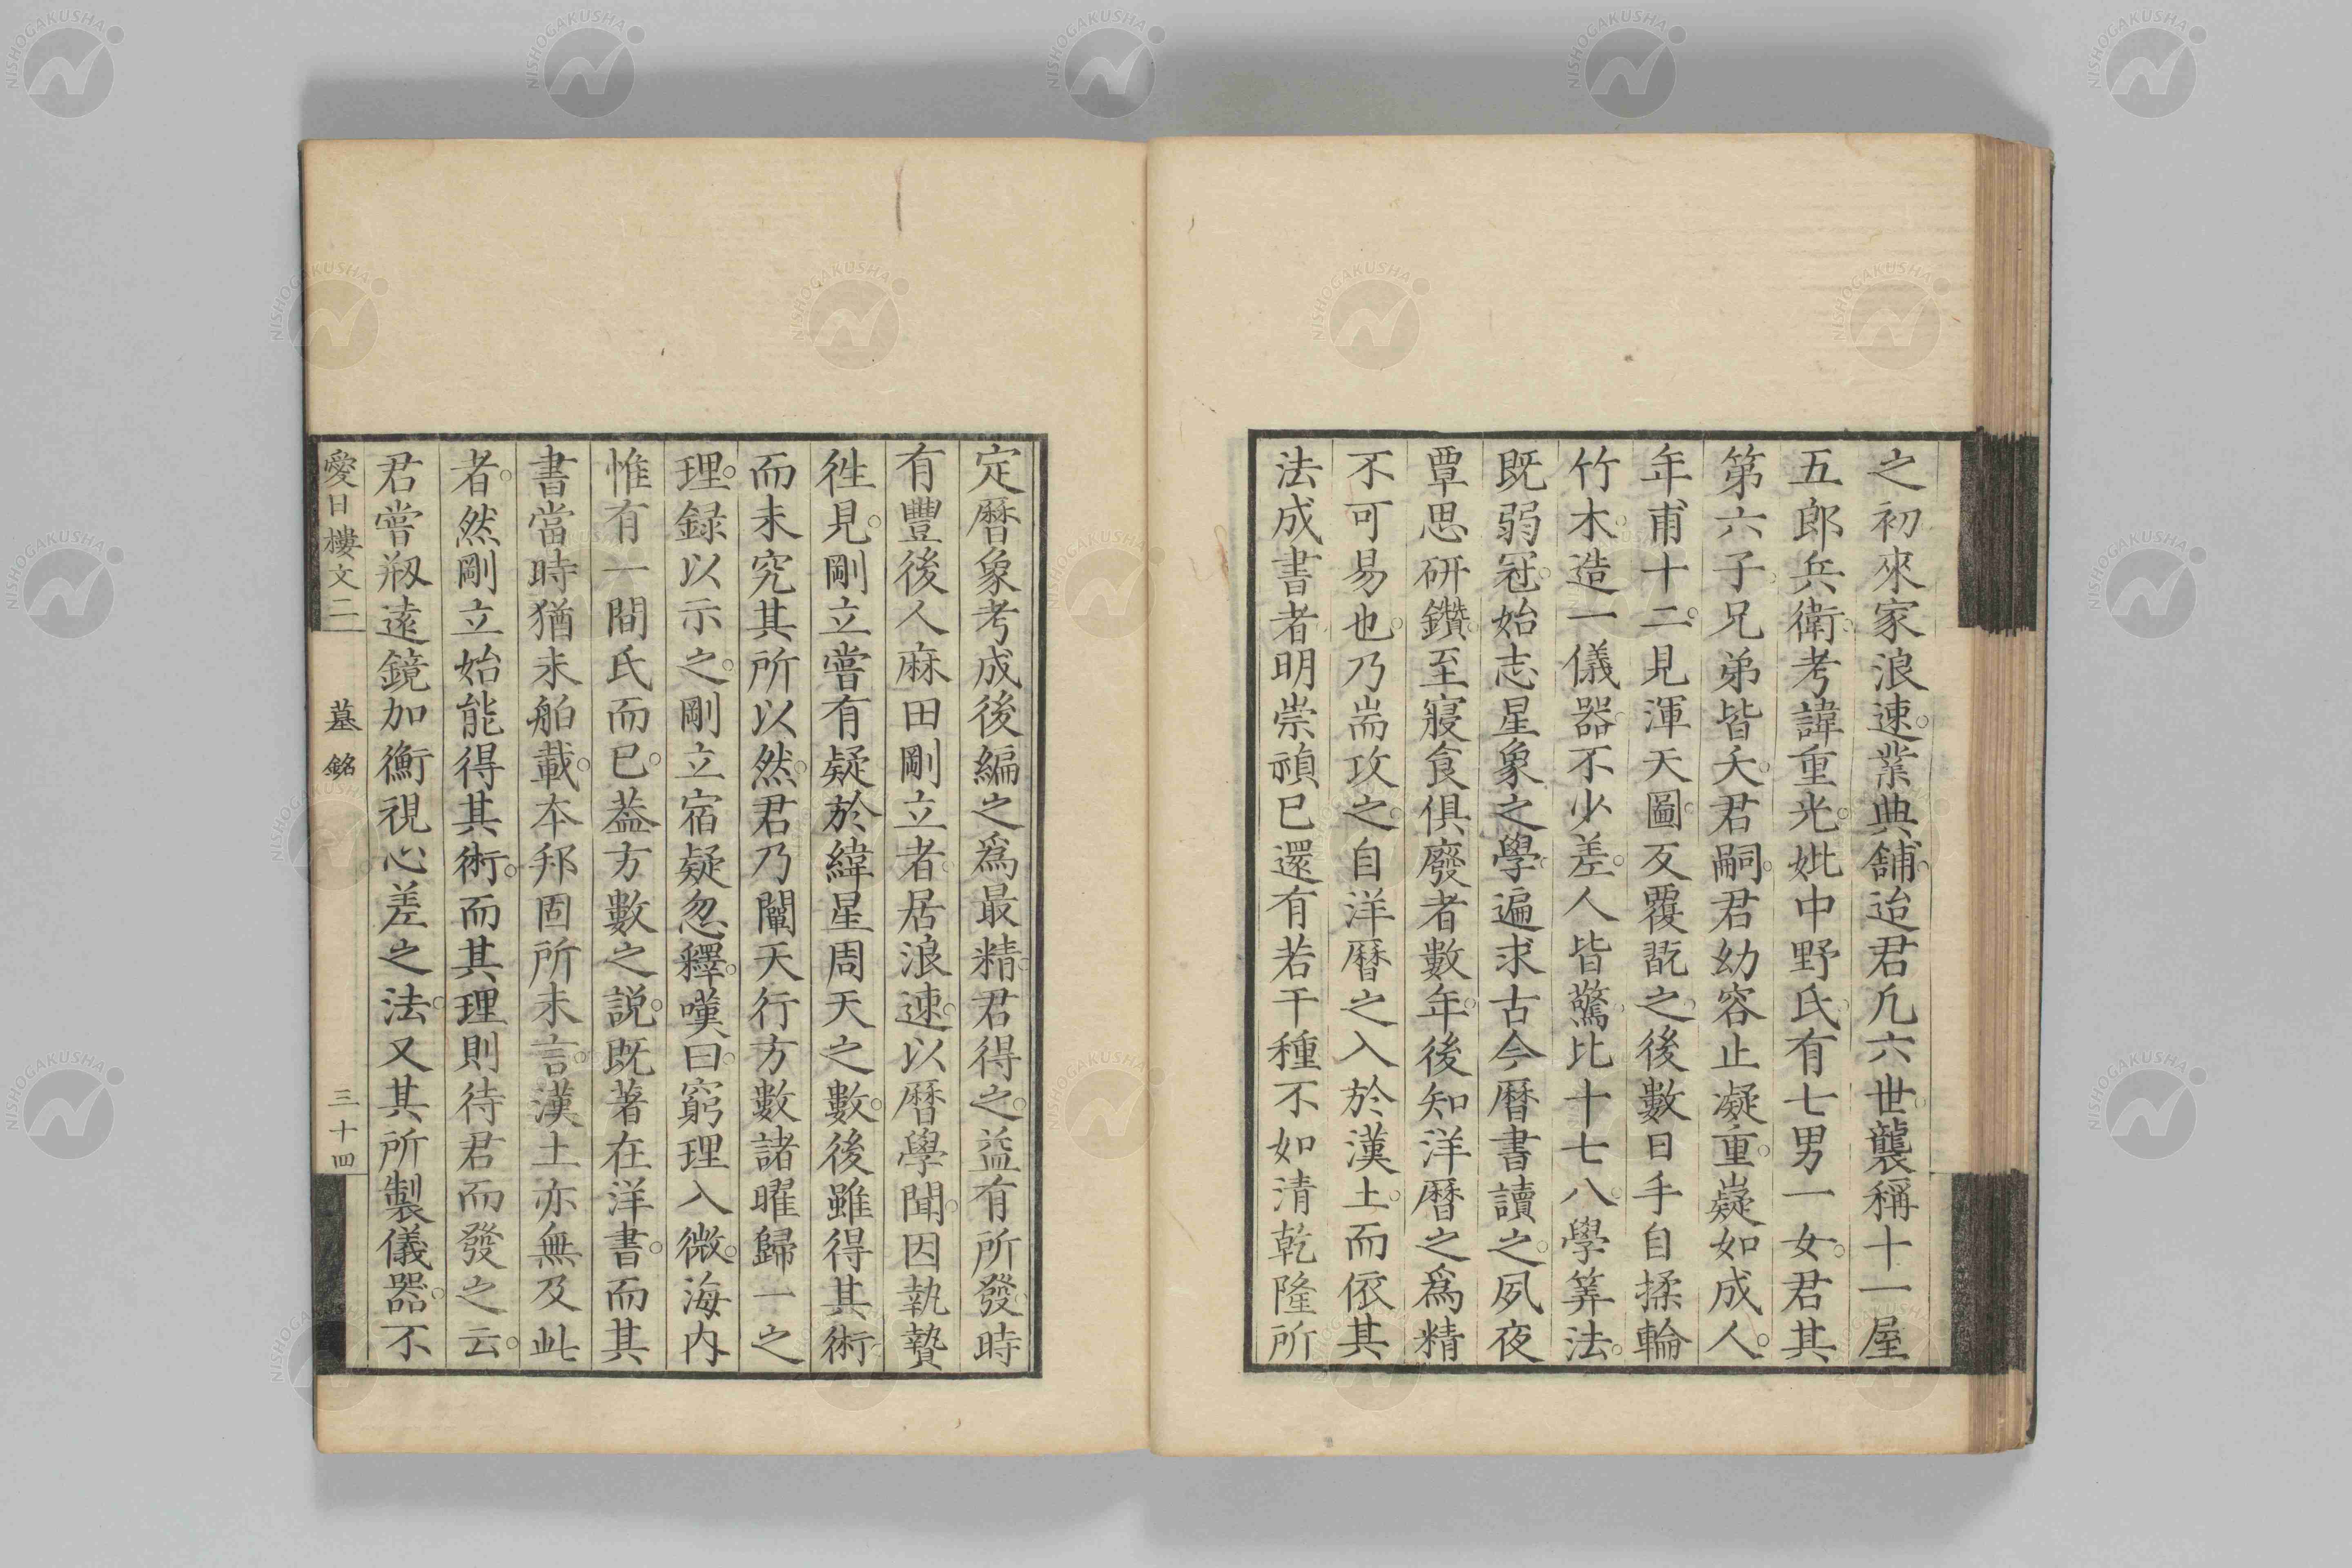 之初來家浪速。業典舖。迨君凡六世。襲稱十一屋
五郎兵衛。考諱重光。妣中野氏。有七男一女。君其
第六子。兄弟皆夭。君嗣。君幼容止凝重。嶷如成人。
年甫十二。見渾天圖。反覆翫之。後數日手自揉輪
竹木。造一儀器。不少差。人皆驚。比十七八。學筭法。
既弱冠。始志星象之學。遍求古今曆書讀之。夙夜
覃思研鑽。至寢食俱廢者數年。後知洋曆之爲精
不可易也。乃耑攻之。自洋曆之入於漢土。而依其
法成書者。明崇禎已還有若干種。不如清乾隆所
定曆象考成後編之爲最精。君得之。益有所發。時
有豐後人麻田剛立者。居浪速。以曆學聞。因執贄
往見。剛立嘗有疑於緯星周天之數。後雖得其術。
而未究其所以然。君乃闡天行方數諸曜歸一之
理。録以示之。剛立宿疑忽釋。嘆曰。窮理入微。海内
惟有一間氏而已。葢方數之説。既著在洋書。而其
書當時猶未舶載。本邦固所未言。漢土亦無及此
者。然剛立始能得其術。而其理則待君而發之云。
君嘗剏遠鏡加衡視心差之法。又其所製儀器。不
愛日樓文二 墓銘 三十四
NISHOGAKUSHA